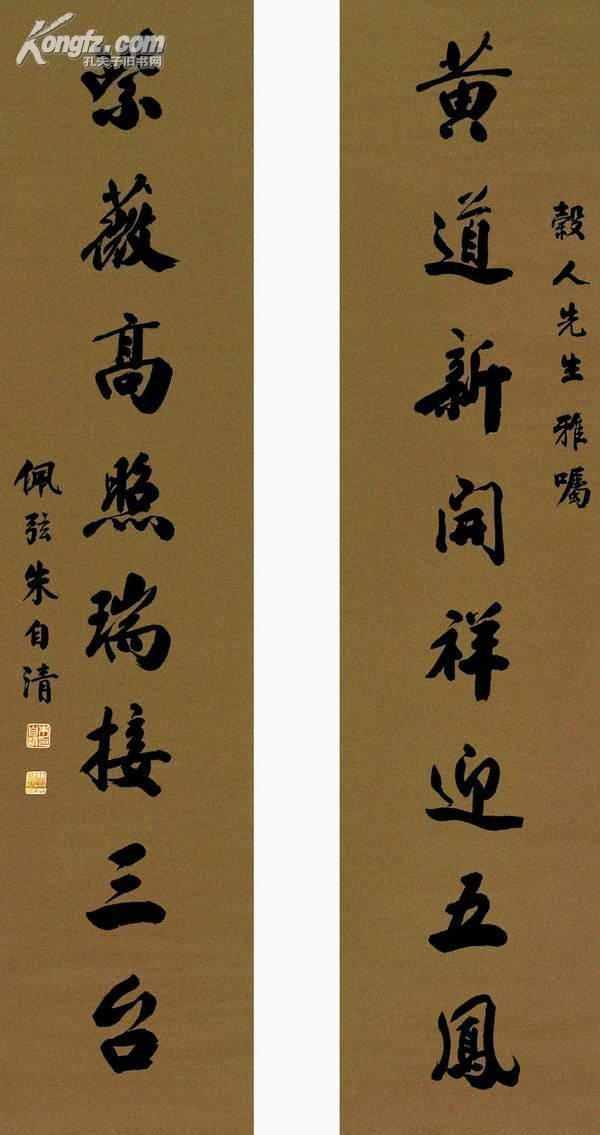 榖人先生雅囑
黄道新開祥迎五鳳
紫薇高照瑞接三台
佩弦朱自清
Kongfz.com
孔夫子旧书网